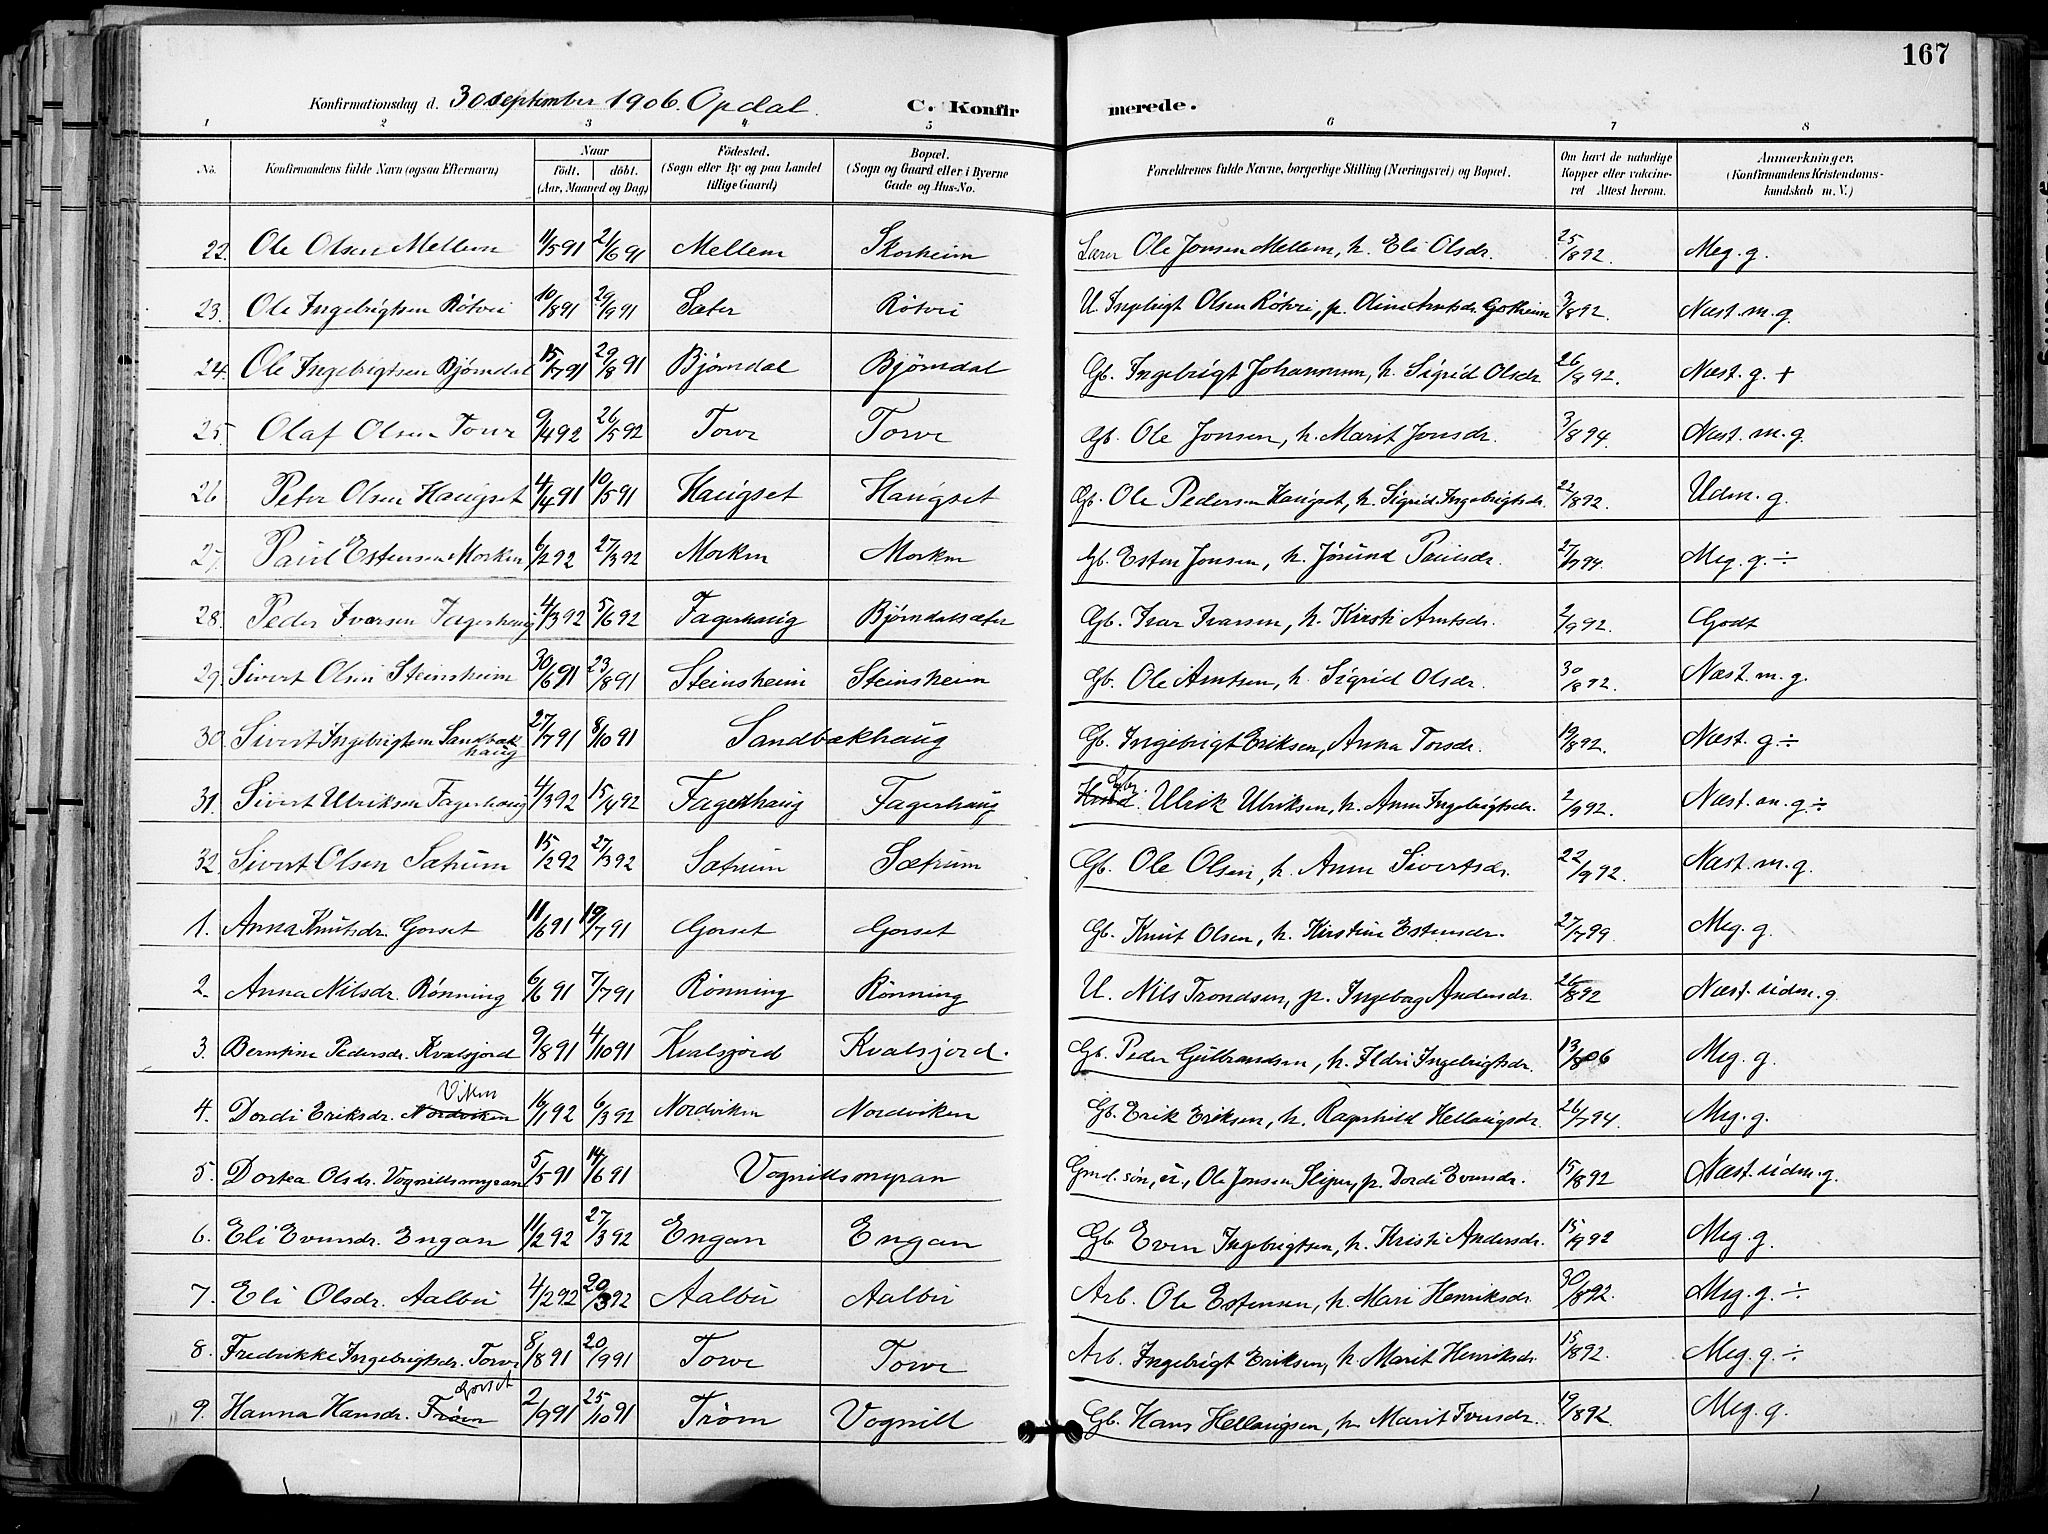 167
Konfirmationsdag d. 30 september 1906. Opdal. C. Konfirmerede.
1 2 3 4 5 6 7 8
No. Konfirmandens fulde Navn (ogsaa Efternavn) Naar født. døbt. (Aar, Maaned og Dag) Fødested. (Sogn eller By og paa Landet tillige Gaard) Bopæl. (Sogn og Gaard eller i Byerne Gade og Hus-No. Forældrenes fulde Navne, borgerlige Stilling (Næringsvei) og Bopæl. Om havt de naturlige Kopper eller vaccineret Attest herom. Anmærkninger, (Konfirmandens Kristendomskundskab m. V.)
22. Ole Olsen Mellem 11/5 91 21/6 91 Mellem Skorheim Lærer Ole Jonsen Mellem, h. Eli Olsdr. 25/8 92. Meg. g.
23. Ole Ingebrigtsen Rötvei 10/8 91 29/9 91 Sæter Rötvei U. Ingebrigt Olsen Rötvei, p. Oline Arntsdr. Gotheim 3/8 92. Næst. m. g.
24. Ole Ingebrigtsen Bjørndal 15/7 91 29/8 91 Bjørndal Bjørndal Gb. Ingebrigt Johannsen, h. Sigrid Olsdr. 26/8 92. Næst. g. +
25. Olaf Olsen Torve 9/4 92 26/5 92 Torve Torve Gb. Ole Jonsen, h. Marit Jonsdr. 3/8 94. Næst. m. g.
26 Peter Olsen Haugset 4/4 91 10/5 91 Haugset Haugset Gb. Ole Pedersen Haugset, h. Sigrid Ingebrigtsdr. 22/8 92. Udm. g.
27. Paul Estensen Morken 6/2 92 27/3 92 Morken Morken Gb. Esten Jonsen, h. Jørund Paulsdr. 27/7 94. Meg. g. ÷
28. Peder Ivarsen Fagerhaug 4/3 92 5/6 92 Fagerhaug Bjørndalsæter Gb. Ivar Ivarsen, h. Kirsti Arntsdr. 2/9 92. Godt
29. Sivert Olsen Steinsheim 30/6 91 23/8 91 Steinsheim Steinsheim Gb. Ole Arntsen, h. Sigrid Olsdr. 30/8 92. Næst. m. g.
30. Sivert Ingebrigtsen Sandbækhaug 27/7 91 8/10 91 Sandbækhaug Gb. Ingebrigt Eriksen, Anna Torsdr. 19/8 92. Næst. g. ÷
31. Sivert Ulriksen Fagerhaug 4/3 92 15/4 92 Fagerhaug Fagerhaug Ulrik Ulriksen, h. Anne Ingebrigtsdr. 2/9 92. Næst. m. g ÷
32. Sivert Olsen Sætrum 15/2 92 27/3 92 Sætrum Sætrum Gb. Ole Olsen, h. Anne Sivertsdr. 22/9 92. Næst. m. g.
1. Anna Knutsdr. Gorset 11/6 91 19/7 91 Gorset Gorset Gb. Knut Olsen, h. Kirstine Estensdr. 27/7 99. Meg. g.
2. Anna Nilsdr. Rönning 6/6 91 7/7 91 Rönning Rönning U. Nils Trondsen, p. Ingeborg Andersdr. 26/8 92 Næst. udm. g
3. Berntine Pedersdr. Kvalsjord 9/8 91 4/10 91 Kvalsjord Kvalsjord. Gb. Peder Gulbrandsen, h. Ildri Ingebrigtsdr. 13/8 06 Meg. g.
4. Dordi Eriksdr. Nordviken Viken 16/1 92 6/3 92 Nordviken Nordviken Gb. Erik Eriksen, h. Ragnhild Hellaugsdr. 26/7 94. Meg. g.
5. Dortea Olsdr. Vognillsmyran 5/5 91 14/6 91 Vognillsmyran Gmd. søn, U, Ole Jonsen Sliper, p. Dordi Evensdr. 15/8 92 Næst. udm. g.
6. Eli Evensdr. Engan 11/2 92 27/3 92 Engan Engan Gb. Even Ingebrigtsen, h. Kristi Andersdr. 15/9 92 Meg. g.
7. Eli Olsdr. Aalbu 4/2 92 20/3 92 Aalbu Aalbu Arb. Ole Estensen, h. Mari Henriksdr. 30/8 92. Meg. g. ÷
8. Fredrikke Ingebrigtsdr. Torve 8/8 91 20/9 91 Torve Torve Arb. Ingebrigt Eriksen, h. Marit Henriksdr. 15/8 92. Meg. g. ÷
9. Hanna Hansdr. Trøen Gorset 2/9 91 25/10 91 Trøen Vognill Gb. Hans Hellaugsen, h. Marit Iversdr. 19/8 92. Meg. g.